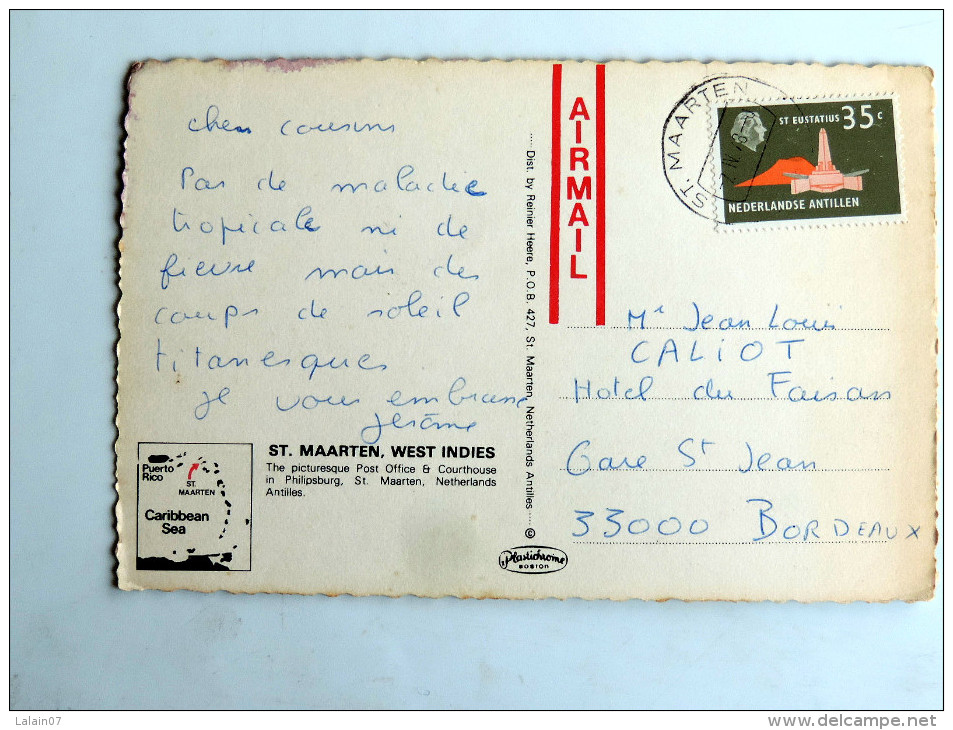 cher cousins
Pas de maladie
tropicale ni de
fievre mais des
coups de soleil
titanesques
je vous embrasse
Jérôme
ST. MAARTEN, WEST INDIES
The picturesque Post Office & Courthouse
in Philipsburg, St. Maarten, Netherlands
Antilles.
Puerto
Rico
ST.
MAARTEN
Caribbean
Sea
..... Dist. by Reinier Heere, P.O.B. 427, St. Maarten, Netherlands Antilles ..... ©
Plastichrome
BOSTON
AIRMAIL
ST. MAARTEN
ST EUSTATIUS 35c
NEDERLANDSE ANTILLEN
Mr Jean Louis
CALIOT
Hotel du Faisan
Gare St Jean
33000 BORDEAUX
Lalain07
www.delcampe.net